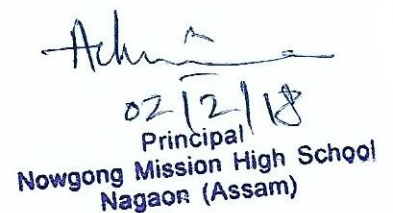 02/2/18
Principal
Nowgong Mission High School
Nagaon (Assam)